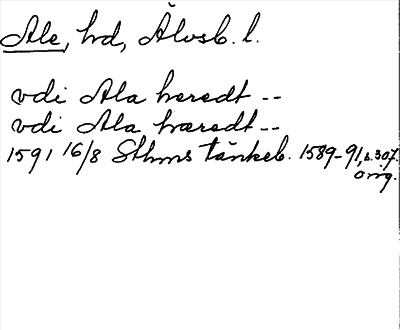 Ale, hd, Älvsb. l.
vdi Ala heredt --
vdi Ala hæredt --
1591 16/8 Sthms tänkeb. 1589-91, s. 307.
orig.